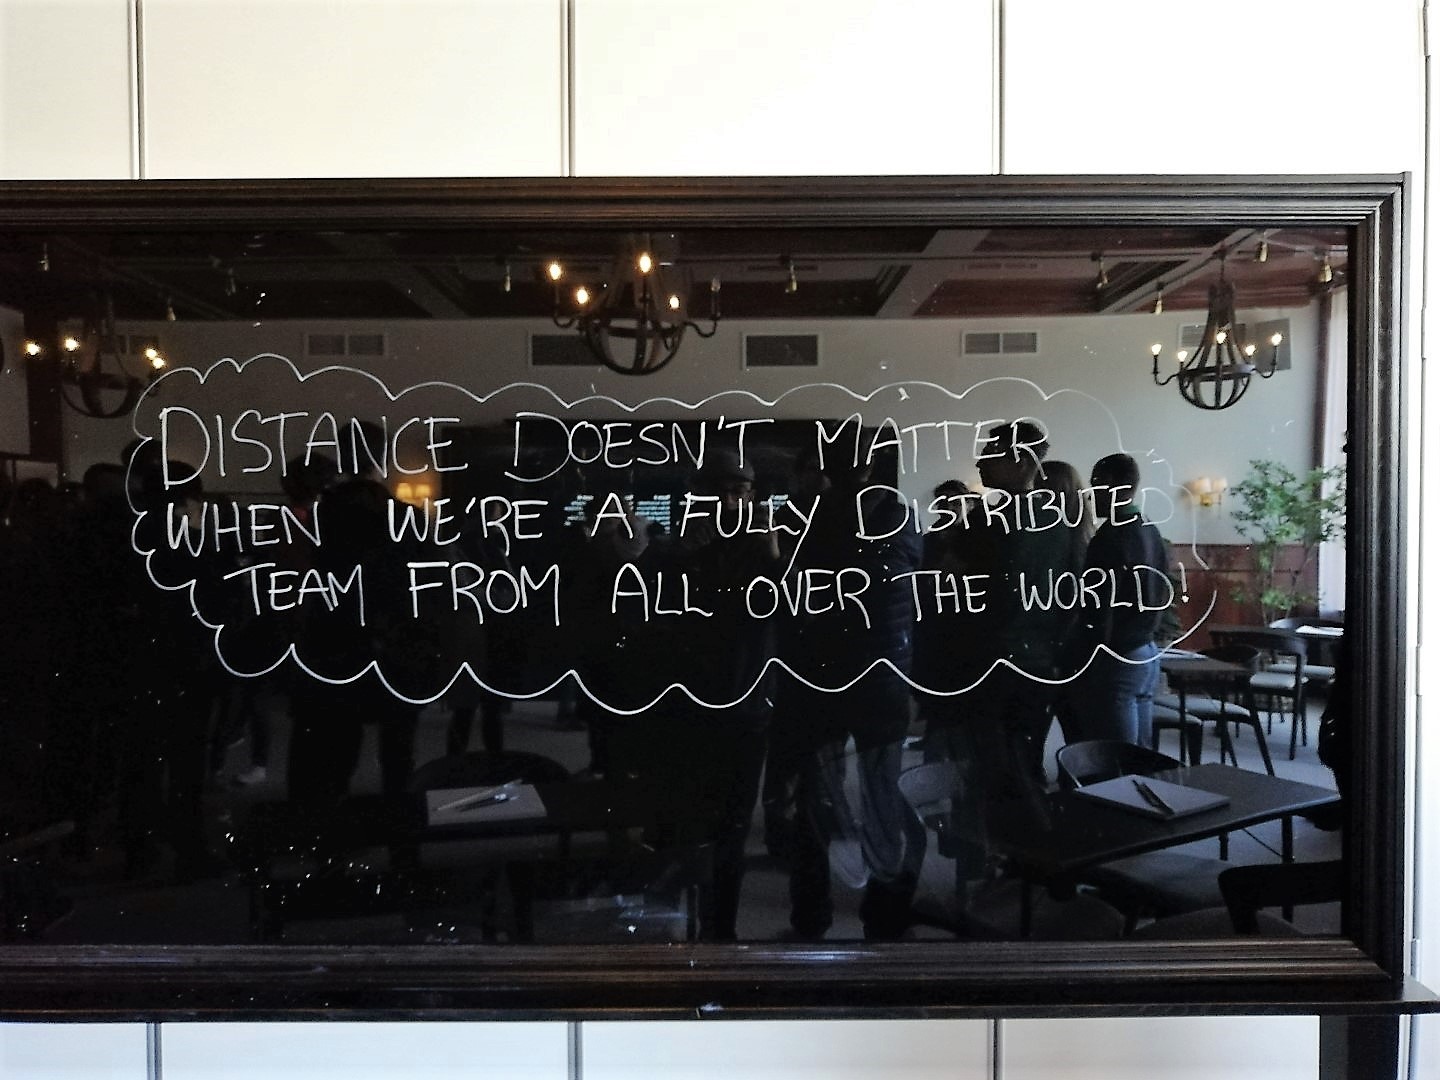 DISTANCE DOESN'T MATTER
WHEN WE'RE A FULLY DISTRIBUTED
TEAM FROM ALL OVER THE WORLD!